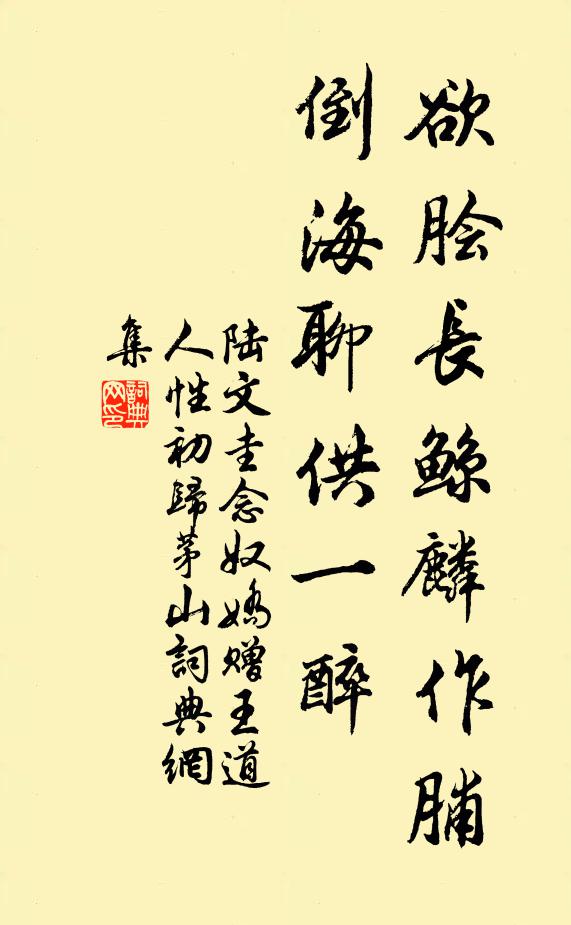 欲脍長鲸麟作脯
倒海聊供一醉
陆文圭念奴嬌赠王道
人性初歸茅山詞典網
集
詞典
网印